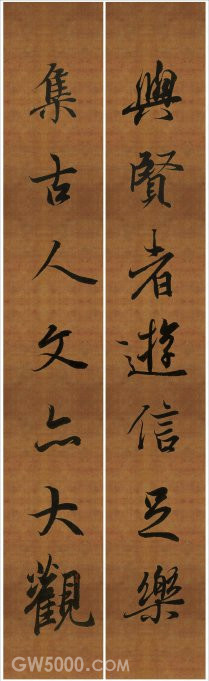 與賢者遊信足樂
集古人文亦大觀
GW5000.com